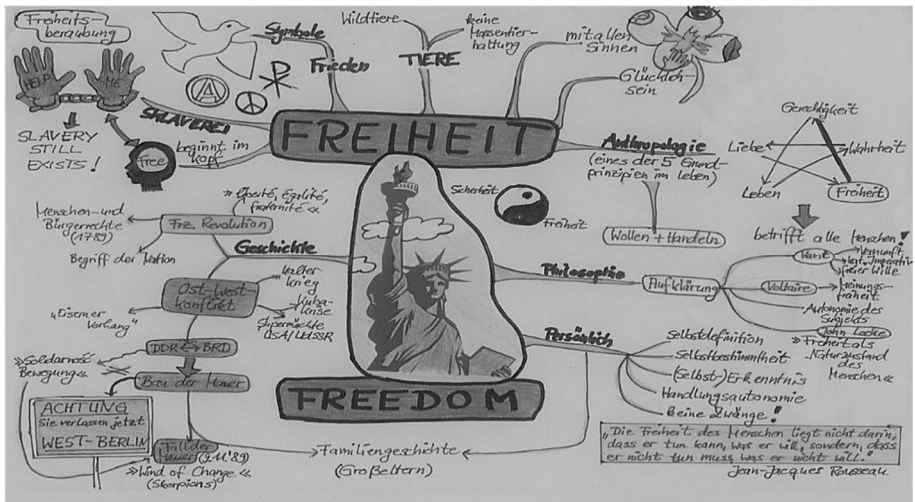 Freiheits-
beraubung
HELP
ME
SLAVERY
STILL
EXISTS!
SKLAVEREI
beginnt im
Kopf
Free
Symbole
Frieden
Wildtiere
keine
Massentier-
haltung
TIERE
mit allen
Sinnen
Glücklich-
sein
FREIHEIT
Anthropologie
(eines der 5 Grund-
prinzipien im Leben)
Wollen + Handeln
Gerechtigkeit
Liebe
Wahrheit
Leben
Freiheit
betrifft alle Menschen!
Sicherheit
Freiheit
Menschen- und
Bürgerrechte
(1789)
»Liberté, Égalité,
fraternité«
Frz. Revolution
Begriff der Nation
Geschichte
Ost-West-
konflikt
Kalter
Krieg
Kuba-
krise
Supermächte
USA/UdSSR
"Eiserner
Vorhang"
DDR BRD
»Solidarność
Bewegung«
Bau der Mauer
ACHTUNG
Sie verlassen jetzt
WEST-BERLIN
Fall der
Mauer (9.11.'89)
»Wind of Change«
(Skorpions)
Familiengeschichte
(Großeltern)
FREEDOM
Philosophie
Aufklärung
Kant
Vernunft
kat. Imperativ
freier Wille
Voltaire
Meinungs-
freiheit
Autonomie des
Subjekts
John Locke
»Freiheit als
Naturzustand
des
Menschen«
Persönlich
Selbstdefinition
Selbstbestimmtheit
(Selbst-)Erkenntnis
Handlungsautonomie
keine Zwänge!
„Die Freiheit des Menschen liegt nicht darin,
dass er tun kann, was er will, sondern, dass
er nicht tun muss, was er nicht will."
Jean-Jacques Rousseau